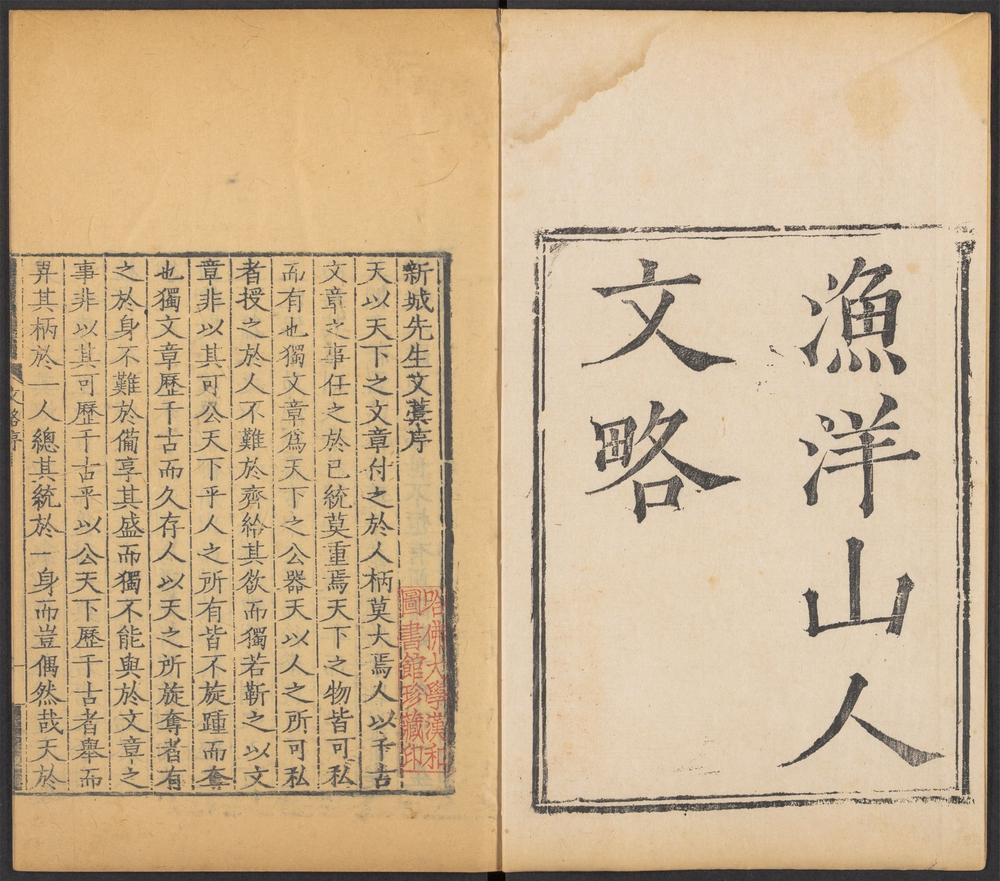 漁洋山人
文略
新城先生文藁序
天以天下之文章付之於人柄莫大焉人以千古
文章之事任之於已統莫重焉天下之物皆可私
而有也獨文章爲天下之公器天以人之所可私
者授之於人不難於齊給其欲而獨若靳之以文
章非以其可公天下乎人之所有皆不旋踵而奪
也獨文章歷千古而久存人以天之所旋奪者有
之於身不難於備享其盛而獨不能與於文章之
事非以其可歷千古乎以公天下歷千古者舉而
畀其柄於一人總其統於一身而豈偶然哉天於
文略序
一
哈佛大學漢和
圖書館珍藏印